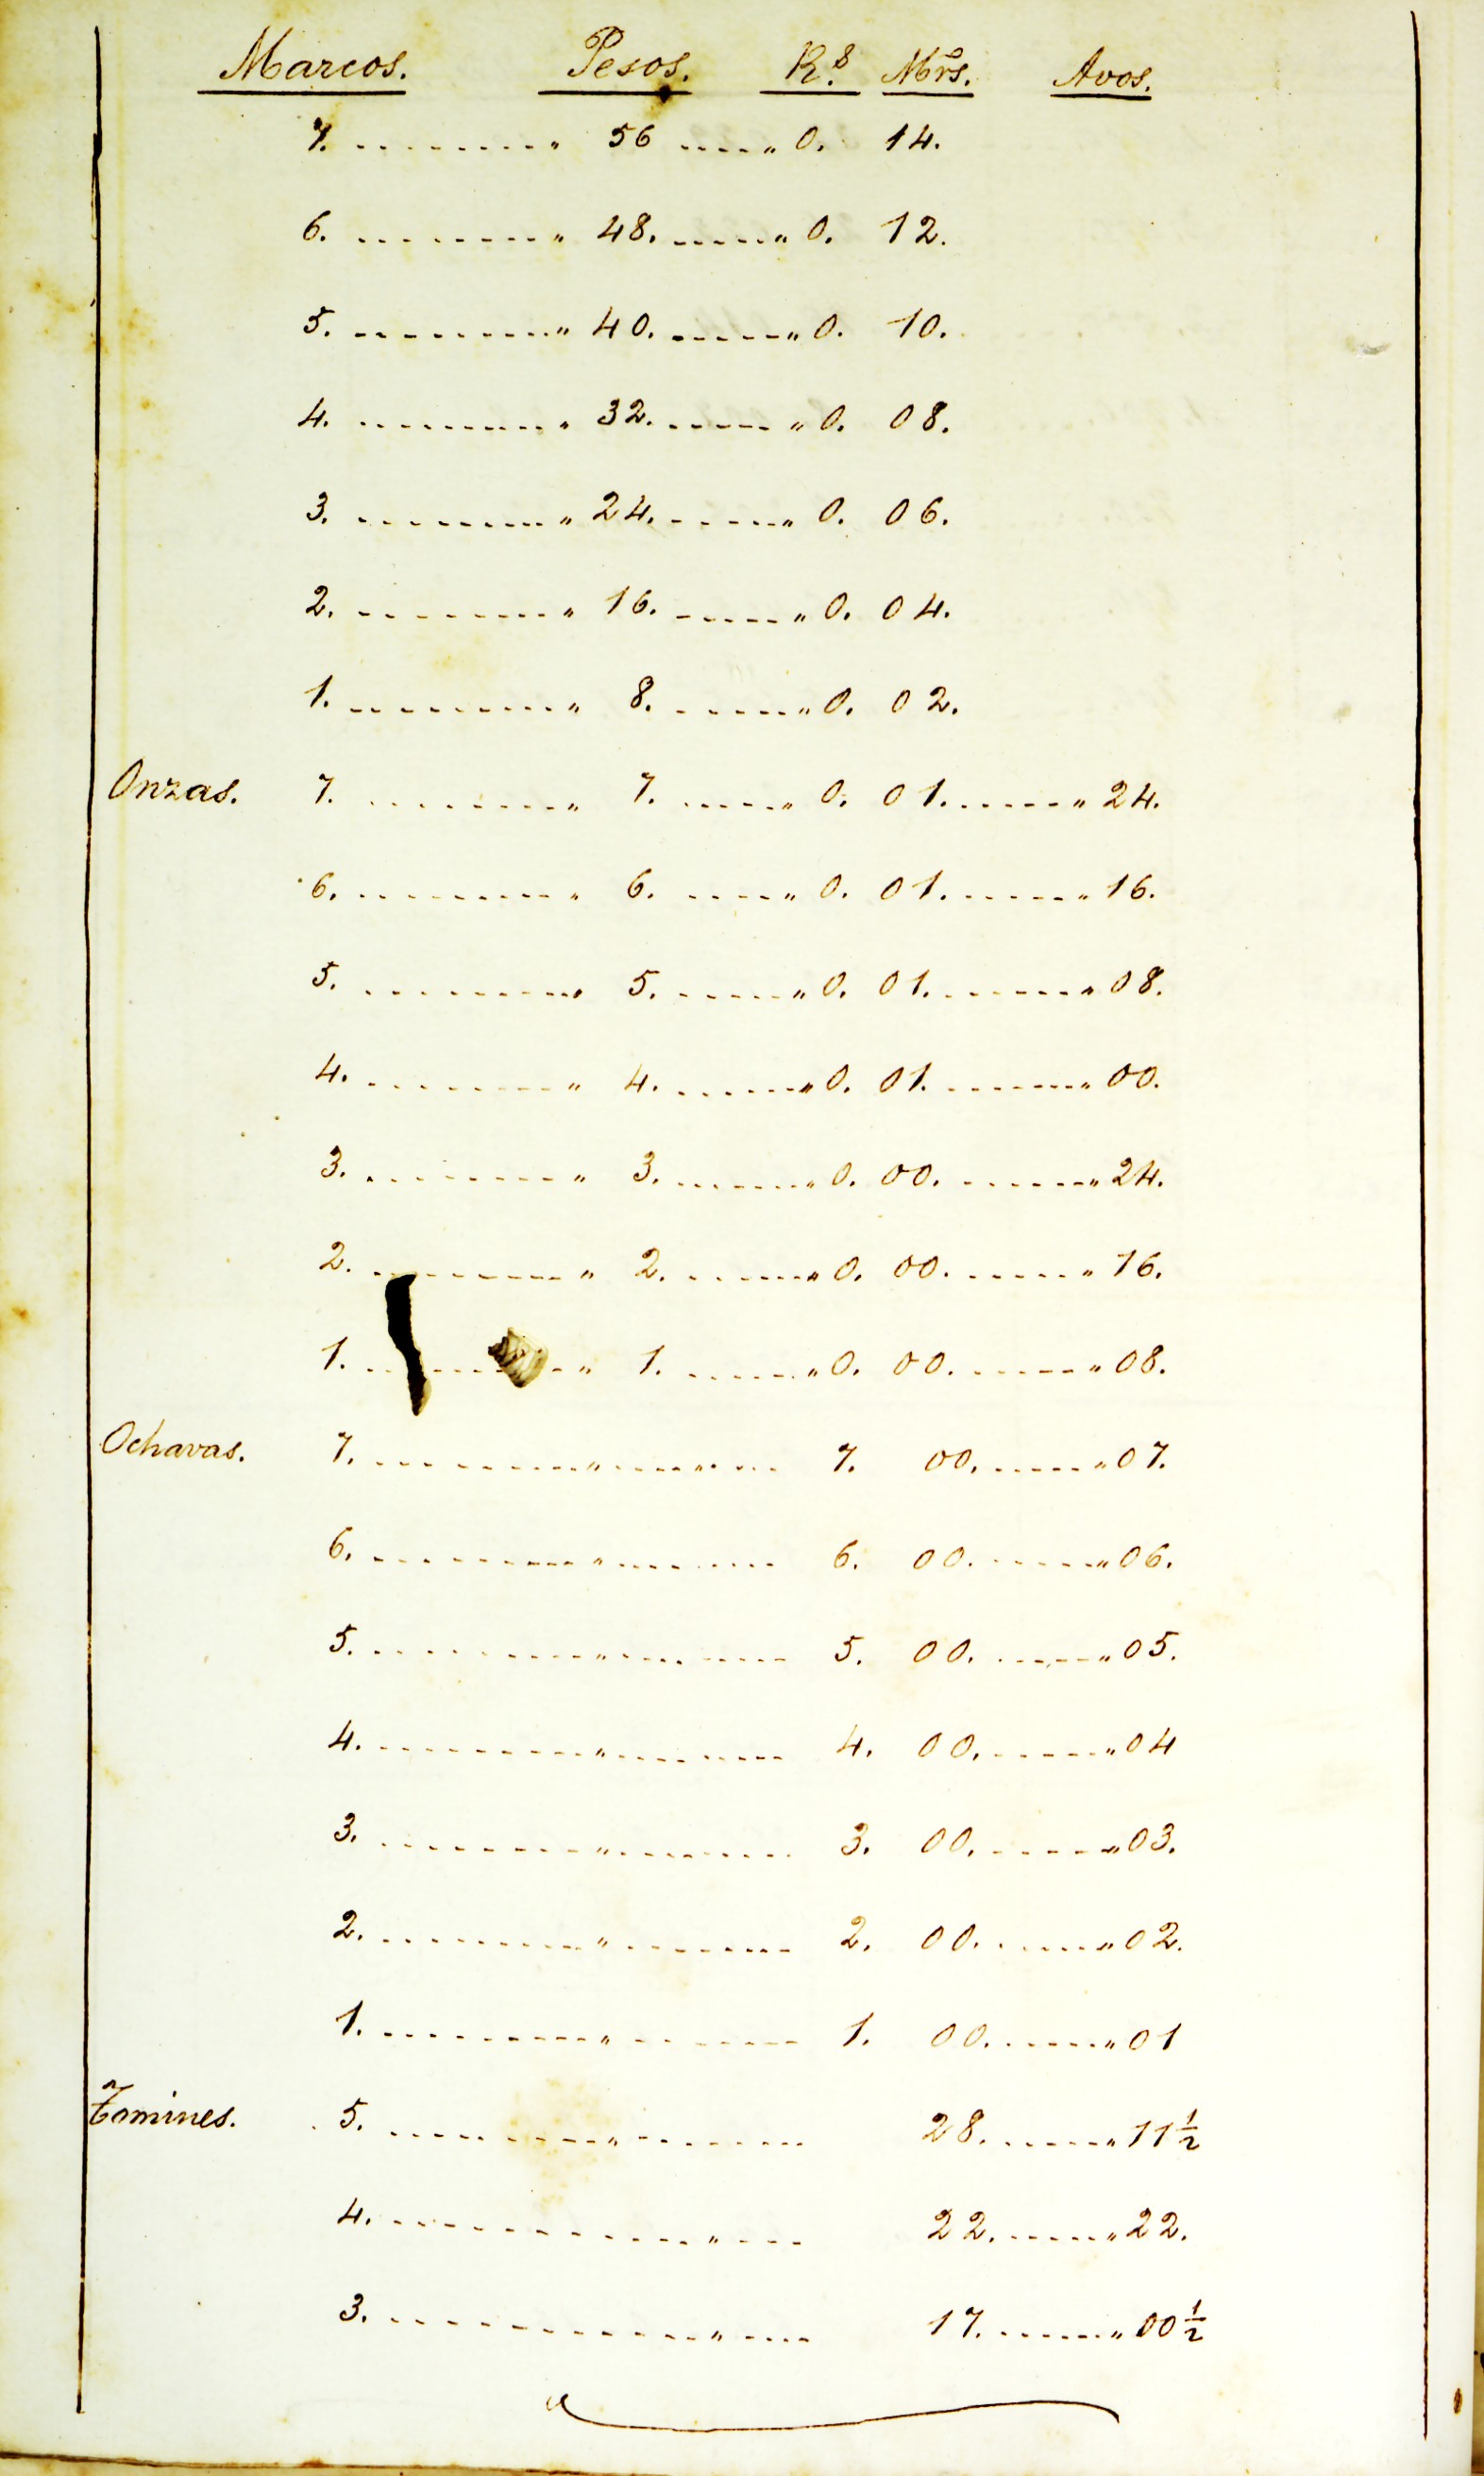 Marcos. Pesos. R.s Mrs. Avos.
7. ......... " 56 ..... " 0. 14.
6. ......... " 48. ..... " 0. 12.
5. ......... " 40. ..... " 0. 10.
4. ......... " 32. ..... " 0. 08.
3. ......... " 24. ..... " 0. 06.
2. ......... " 16. ..... " 0. 04.
1. ......... " 8. ..... " 0. 02.
Onzas. 7. ......... " 7. ..... " 0. 01. ..... " 24.
6. ......... " 6. ..... " 0. 01. ..... " 16.
5. ......... " 5. ..... " 0. 01. ..... " 08.
4. ......... " 4. ..... " 0. 01. ..... " 00.
3. ......... " 3. ..... " 0. 00. ..... " 24.
2. ......... " 2. ..... " 0. 00. ..... " 16.
1. ......... " 1. ..... " 0. 00. ..... " 08.
Ochavas. 7. ......... " ......... 7. 00. ..... " 07.
6. ......... " ......... 6. 00. ..... " 06.
5. ......... " ......... 5. 00. ..... " 05.
4. ......... " ......... 4. 00. ..... " 04
3. ......... " ......... 3. 00. ..... " 03.
2. ......... " ......... 2. 00. ..... " 02.
1. ......... " ......... 1. 00. ..... " 01
Tomines. 5. ......... " ......... 28. ..... " 11 1/2
4. ............ " ... 22. ..... " 22.
3. ............ " .... 17. ..... " 00 1/2